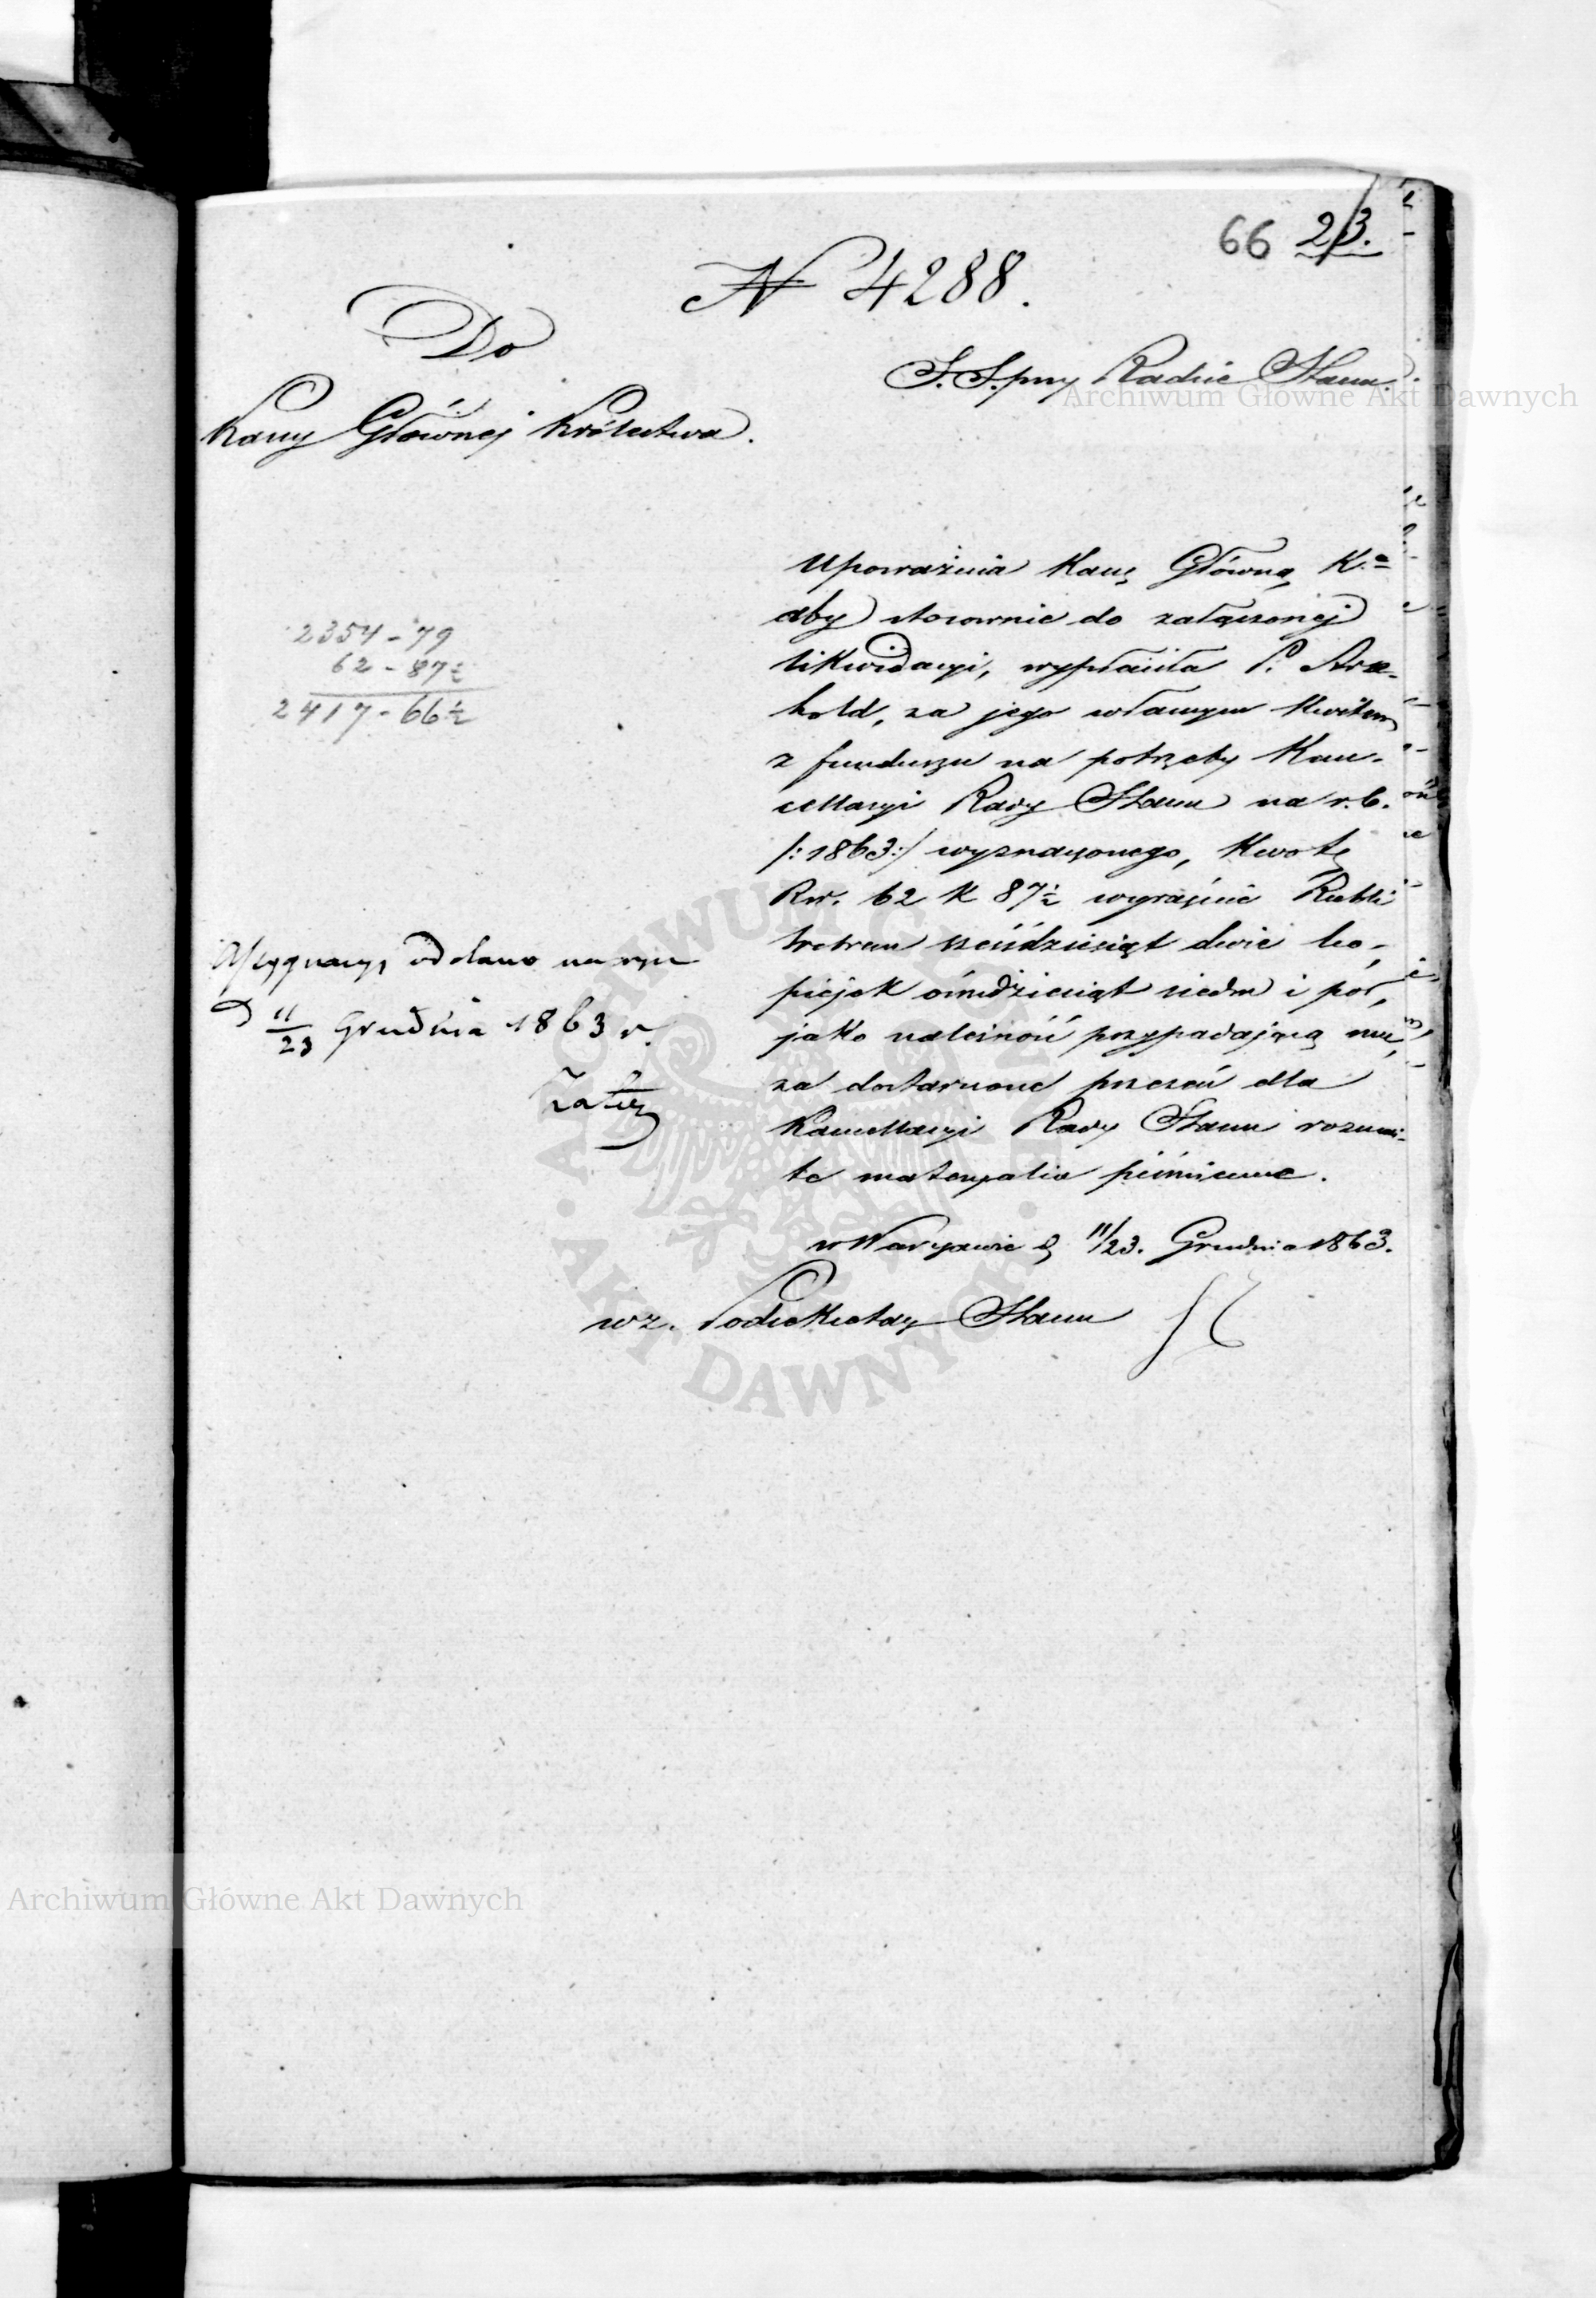 66 23.
N 4288.
Do
Kassy Głównej Królestwa.
S. S. przy Radzie Stanu.
Archiwum Główne Akt Dawnych
Upoważnia Kassę Główną K.a
aby stosownie do załączonej
likwidacyi, wypłaciła P.
hold, za jego własnym kwitem
z funduszu na potrzeby Kan-
cellaryi Rady Stanu na r. b.
/: 1863 :/ wyznaczonego, kwotę
Rsr. 62 k 87½ wyraźnie Rubli
srebrem sześćdziesiąt dwie ko-
piejek ośmdziesiąt siedm i pół,
jako należność przypadającą mu,
za dostarczone przezeń dla
Kancellaryi Rady Stanu rozmai-
te materyalia piśmienne.
w Warszawie d 11/23. Grudnia 1863.
wz. Podsekretarz Stanu
2354 - 79
62 - 87½
2417 - 66½
Assygnacyę oddano na ręce
d 11/23 Grudnia 1863 r.
ARCHIWUM GŁÓWNE
AKT DAWNYCH
Archiwum Główne Akt Dawnych